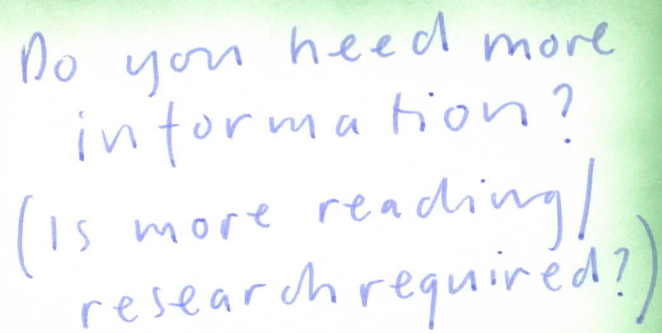 Do you need more
information?
(Is more reading/
research required?)